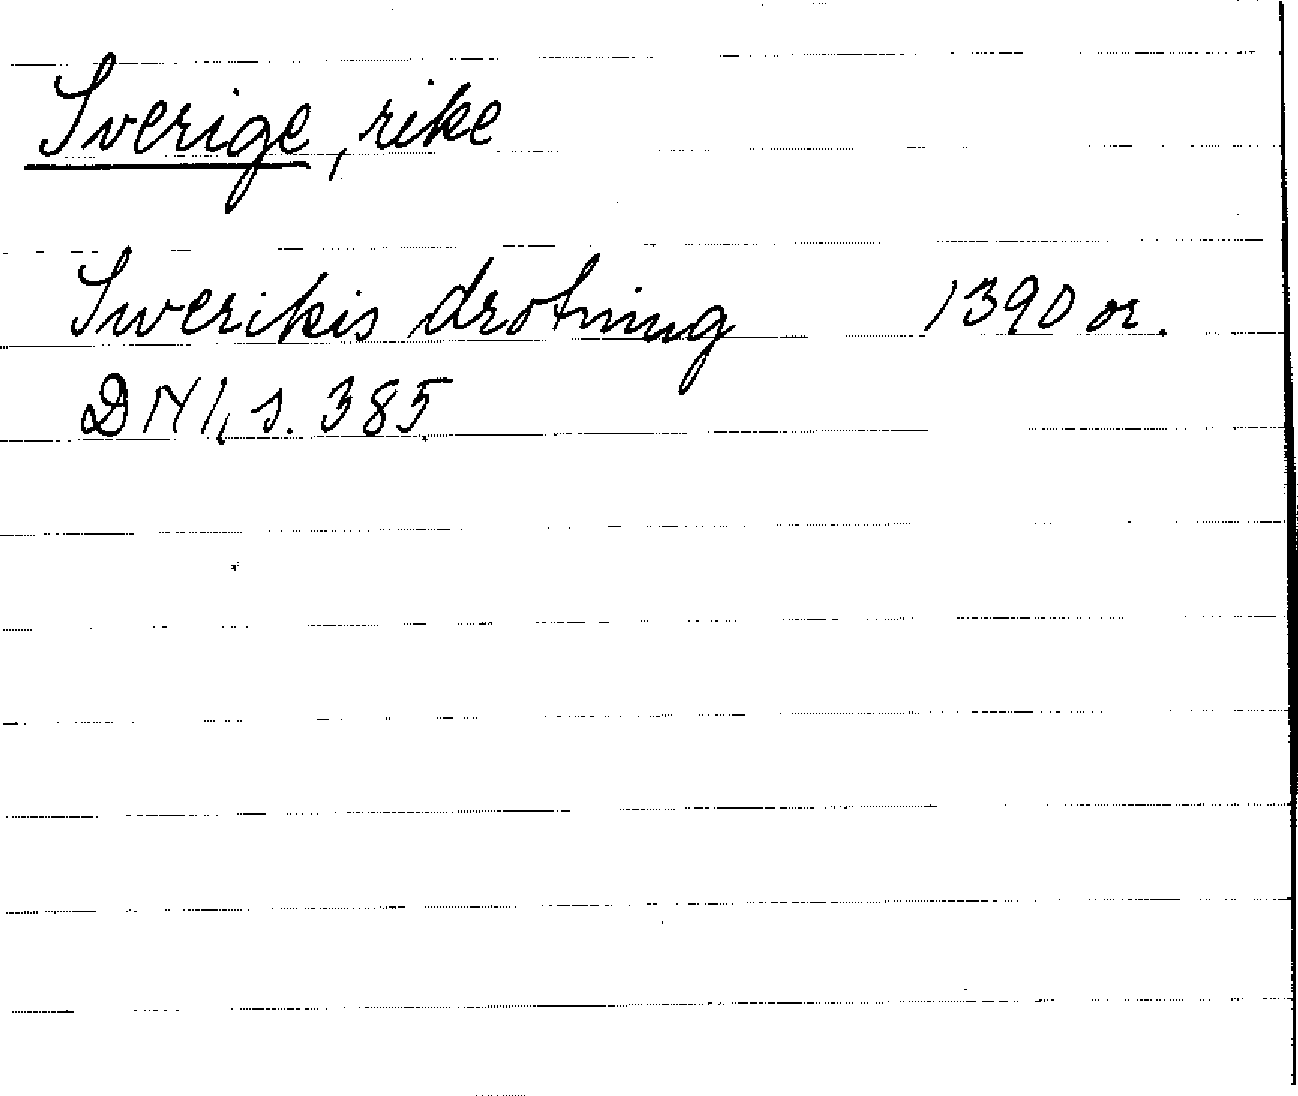 Sverige, rike
Swerikis drotning 1390 or.
DN 1, s. 385